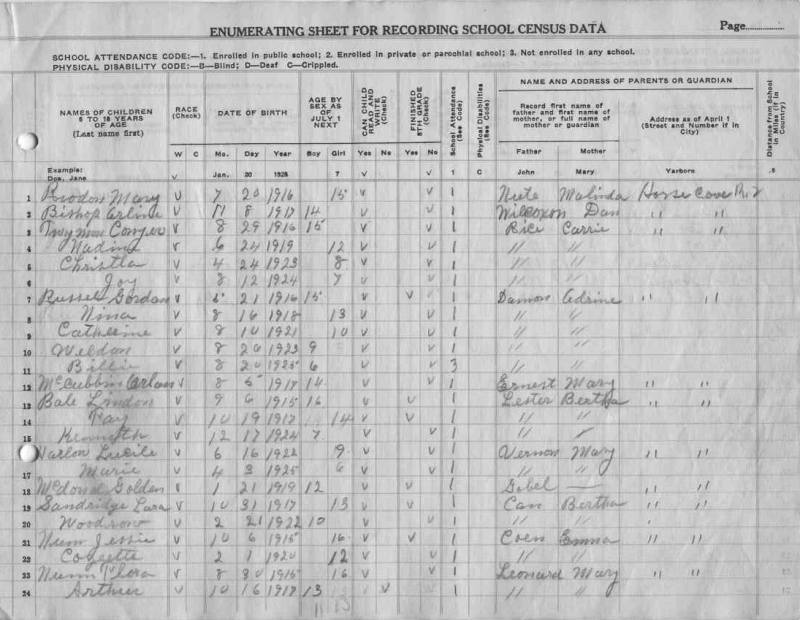 ENUMERATING SHEET FOR RECORDING SCHOOL CENSUS DATA Page
SCHOOL ATTENDANCE CODE:—1. Enrolled in public school; 2. Enrolled in private or parochial school; 3. Not enrolled in any school.
PHYSICAL DISABILITY CODE:—B—Blind; D—Deaf C—Crippled.
NAMES OF CHILDREN 6 TO 18 YEARS OF AGE (Last name first)
RACE (Check)
DATE OF BIRTH
AGE BY SEX AS OF JULY 1 NEXT
CAN CHILD READ AND WRITE (Check)
FINISHED 8TH GRADE (Check)
School Attendance (See Code)
Physical Disabilities (See Code)
NAME AND ADDRESS OF PARENTS OR GUARDIAN
Record first name of father and first name of mother, or full name of mother or guardian
Address as of April 1 (Street and Number if in City)
Distance from School in Miles (if in Country)
W C Mo. Day Year Boy Girl Yes No Yes No Father Mother
Example: Doe, Jane V Jan. 20 1928 7 V V 1 C John Mary Yarboro .5
1 Mary V 7 20 1916 15 V V 1 Malinda Horse Cove R. 2
2 Bishop V 11 8 1917 14 V V 1 Wilcoxon Dan " "
3 V 8 29 1916 15 V V 1 Rice Carrie " "
4 Nadine V 6 24 1919 12 V V 1 " "
5 Christla V 4 24 1923 8 V V 1 " "
6 Joy V 8 12 1924 7 V V 1 " "
7 Russel Gordon V 21 1916 15 V V 1 Damon " "
8 Nina V 8 16 1918 13 V V 1 " "
9 Catherine V 8 10 1921 10 V V 1 " "
10 Weldon V 8 20 1923 9 V V 1 " "
11 Billie V 8 20 1925 6 V V 3 " "
12 McCubbin V 8 5 1917 14 V V 1 Ernest Mary " "
13 Bale Lindon V 9 6 1915 16 V V 1 Lester Bertha " "
14 Fay V 10 19 1917 14 V V 1 " "
15 Kenneth V 12 17 1924 7 V V 1 "
Lucile V 6 16 1922 9 V V 1 Vernon Mary " "
17 Marie V 4 3 1925 6 V V 1 " "
18 Golden V 1 21 1919 12 V V 1 Gobel — " "
19 Sandridge V 10 31 1917 13 V V 1 Bertha " "
20 Woodrow V 2 21 1922 10 V V 1 " "
21 Nunn Jessie V 10 6 1915 16 V V 1 Coen Emma " "
22 V 2 1 1920 12 V V 1 " "
23 Nunn V 8 30 1915 16 V V 1 Leonard Mary " "
24 Arthur V 10 16 1917 13 V V 1 " "